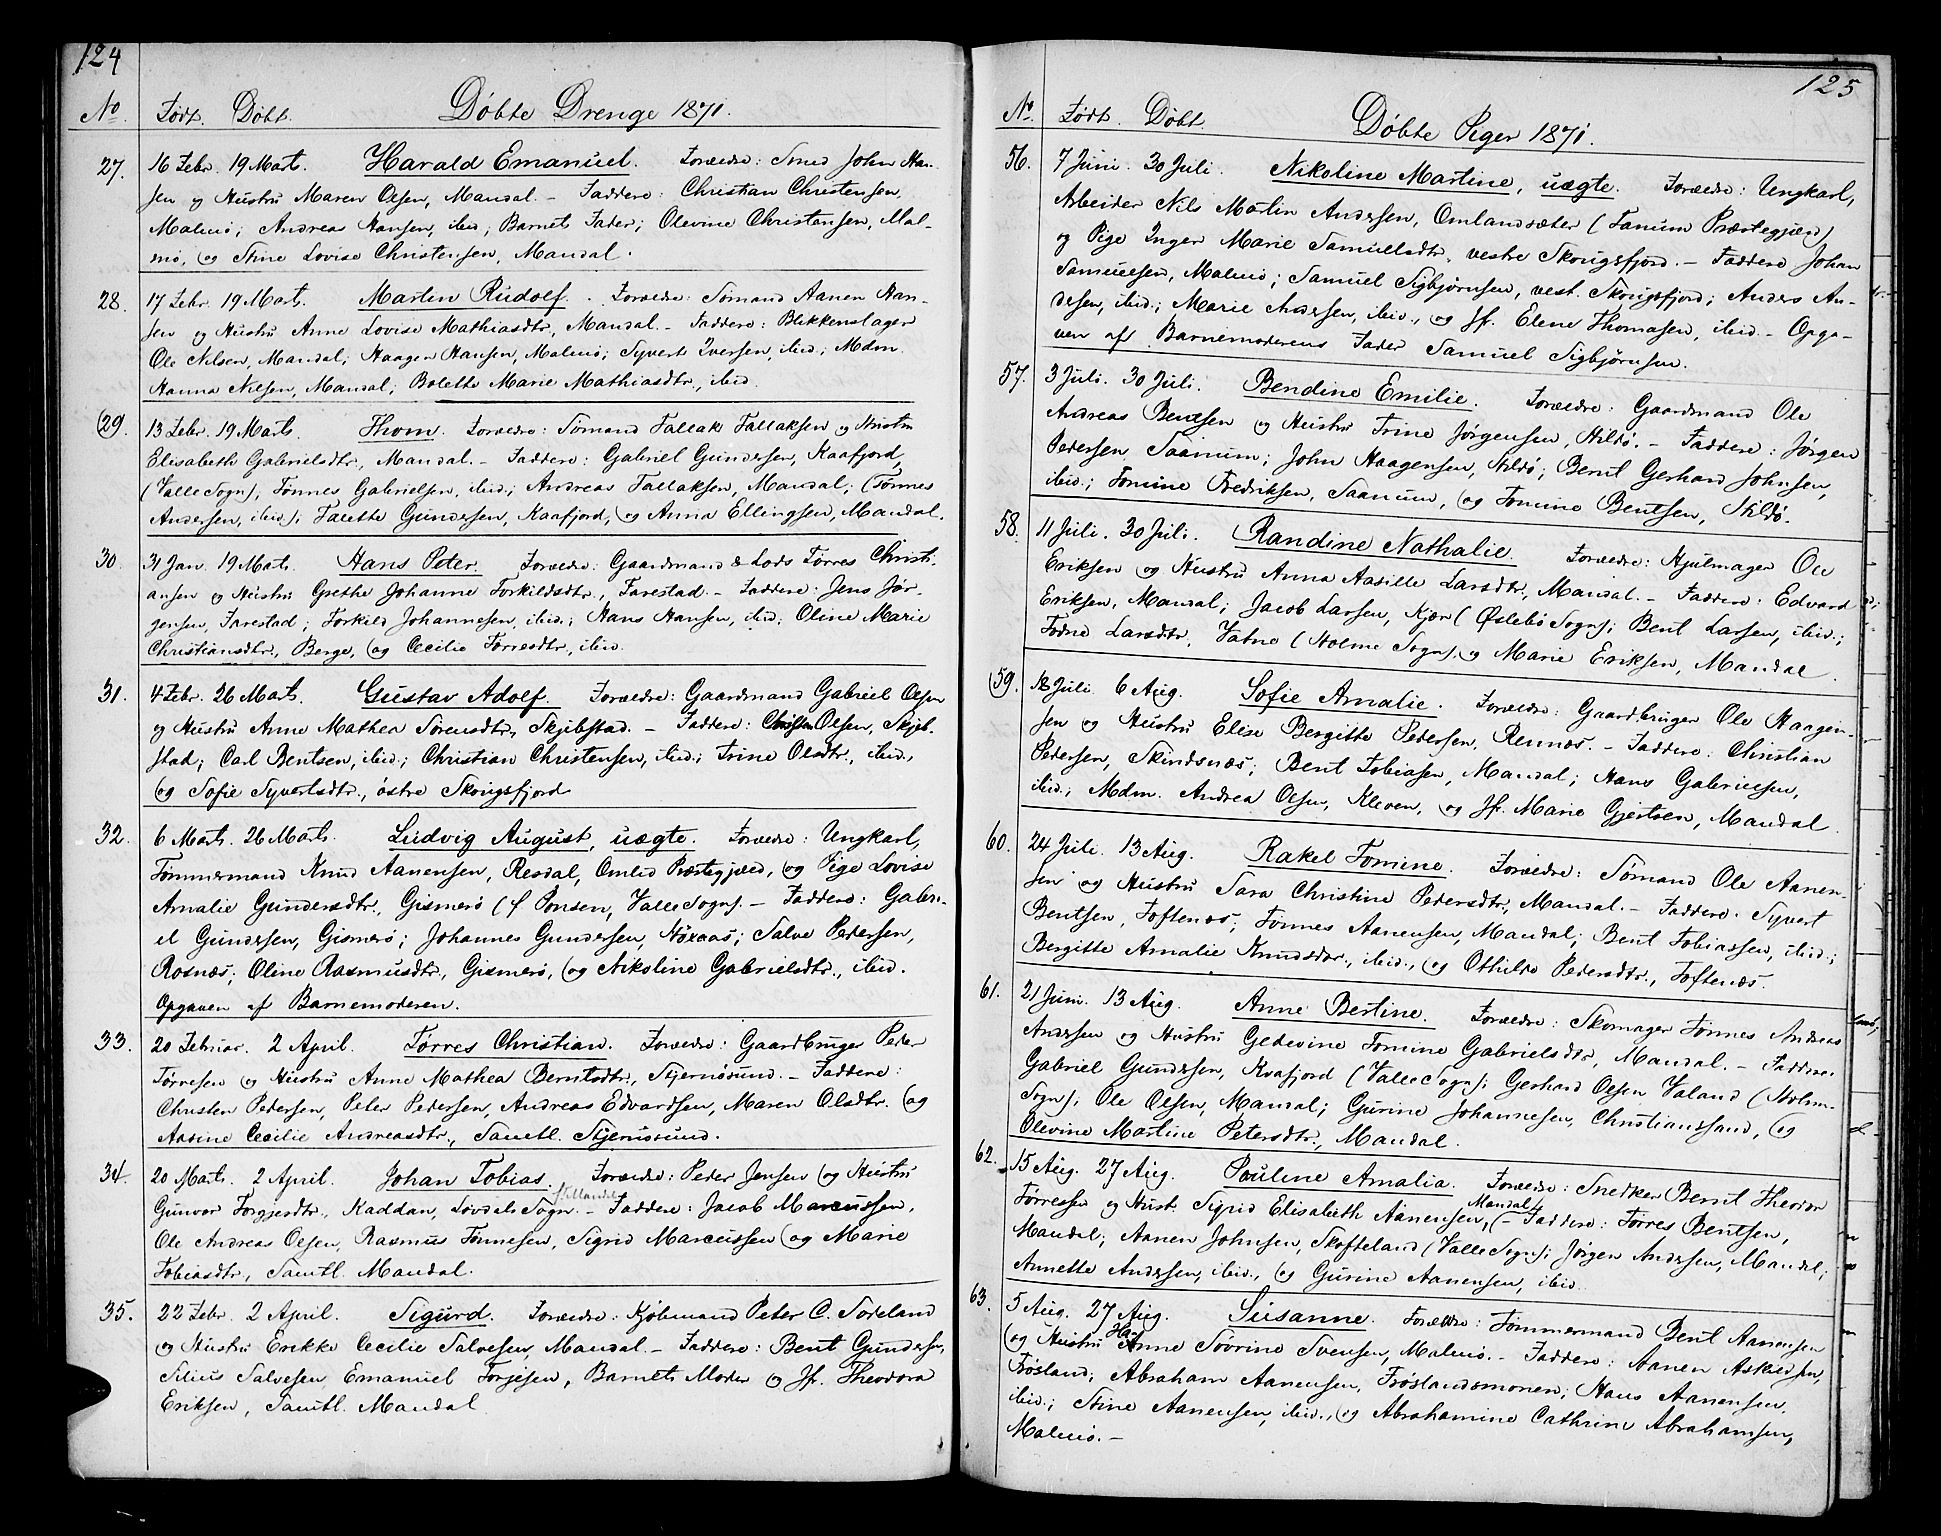 124
No. Født. Døbt. Døbte Drenge 1871.
27. 16 Febr. 19 Marts. Harald Emanuel. Forældre: Smed John Han-
sen og Hustru Maren Olsen, Mandal. – Faddere: Christian Christensen,
Malmø; Andreas Hansen, ibid; Barnets Fader; Olevine Christensen, Mal-
mø, og Stine Lovise Christensen, Mandal.
28. 17 Febr. 19 Marts. Martin Rudolf. Forældre: Sømand Aanen Han-
sen og Hustru Anne Lovise Mathiasdtr, Mandal. – Faddere: Blikkenslager
Ole Nilsen, Mandal; Haagen Hansen, Malmø; Syvert Iversen, ibid; Mdm.
Hanna Nilsen, Mandal; Bolette Marie Mathiasdtr, ibid.
29. 13 Febr. 19 Marts. Thom. Forældre: Sømand Tallak Tallaksen og Hustru
Elisabeth Gabrielsdtr., Mandal. – Faddere: Gabriel Gundersen, Kaafjord,
(Valle Sogn); Tønnes Gabrielsen, ibid.; Andreas Tallaksen, Mandal; (Tønnes
Andersen, ibid.); Talette Gundersen, Kaafjord, og Anna Ellingsen, Mandal.
30. 31 Jan. 19 Marts. Hans Peter. Forældre: Gaardmand & Lods Tørres Christi-
ansen og Hustru Grethe Johanne Torkildsdtr., Tarestad. – Faddere: Jens Jør-
gensen, Tarestad; Torkild Johannesen, ibid.; Hans Hansen, ibid; Oline Marie
Christiansdtr., Berge, og Cecilie Tørresdtr., ibid.
31. 4 Febr. 26 Marts. Gustav Adolf. Forældre: Gaardmand Gabriel Olsen
og Hustru Anne Mathea Sørensdtr, Skjebstad. – Faddere: Christen Olsen, Skjeb-
stad; Carl Bentsen, ibid.; Christian Christensen, ibid.; Trine Olsdtr., ibid.,
og Sofie Syvertsdtr., østre Skougsfjord
32. 6 Marts. 26 Marts. Ludvig August, uægte. Forældre: Ungkarl,
Tømmermand Knud Aanensen, Resdal, Omlid Præstegjæld, og Pige Lovise
Amalie Gundersdtr., Gismerø (f. Ponsen, Valle Sogn). – Faddere: Gabri-
el Gundersen, Gismerø; Johannes Gundersen, Salve Pedersen,
Rosnæs; Oline Rasmusdtr., Gismerø, og Nikoline Gabrielsdtr., ibid.
Opgaven af Barnemoderen.
33. 20 Februar. 2 April. Tørres Christian. Forældre: Gaardbruger Peder
Tørresen og Hustru Anne Mathea Berntsdtr., Stjernøsund. – Faddere:
Christen Pedersen, Peter Pedersen, Andreas Edvardsen, Maren Olsdtr. og
Aasine Cecilie Andreasdtr., Samtl. Stjernøsund.
34. 20 Marts. 2 April. Johan Tobias. Forældre: Peder Jensen og Hustru
Gunvor Torgjesdtr., Kaddan, Løvdals Sogn. – Faddere: Jacob Marcussen,
Ole Andreas Olsen, Rasmus Tønnesen, Sigrid Marcussen og Marie
Tobiasdtr, Samtl. Mandal.
35. 22 Febr. 2 April. Sigurd. Forældre: Kjøbmand Peter C. Sodeland
og Hustru Erikke Cecilie Salvesen, Mandal. – Faddere: Bent Gundersen,
Silius Salvesen, Emanuel Torjesen, Barnets Moder og Jf. Theodora
Eriksen, Samtl. Mandal
125
No. Født. Døbt. Døbte Piger 1871.
56. 7 Juni. 30 Juli. Nikoline Martine, uægte. Forældre: Ungkarl,
Arbeider Nils Martin Andersen, Omlandsæter (Fanum Præstegjæld)
og Pige Inger Marie Samuelsdtr, vestre Skougsfjord. – Faddere Johan
Samuelsen, Malmø; Samuel Sigbjørnsen, vest. Skougsfjord; Anders An-
dersen, ibid.; Marie Andersen, ibid., og Jf. Elene Thomasen, ibid. – Opga-
ven af Barnemoderens Fader Samuel Sigbjørnsen.
57. 3 Juli. 30 Juli. Bendine Emilie. Forældre: Gaardmand Ole
Andreas Bentsen og Hustru Trine Jørgensen, Hildø. – Faddere: Jørgen
Pedersen, Saanum; John Haagensen, Hildø; Bernt Gerhard Johnsen,
ibid.; Tomine Fredriksen, Saanum, og Tomine Bentsen, Hildø.
58. 11 Juli. 30 Juli. Randine Nathalie. Forældre: Hjulmager Ole
Eriksen og Hustru Anna Aasille Larsdtr., Mandal. – Faddere: Edvard
Eriksen, Mandal; Jacob Larsen, Kjær (Øslebø Sogn); Bent Larsen, ibid.;
Todne Larsdtr, Vatne (Holme Sogn), og Marie Eriksen, Mandal.
59. 18 Juli. 6 Aug. Sofie Amalie. Forældre: Gaardbruger Ole Haagen-
sen og Hustru Elise Bergitte Pedersen, Rennæs. – Faddere: Christian
Pedersen, Skindsnæs; Bent Tobiasen, Mandal; Hans Gabrielsen,
ibid.; Mdm. Andrea Olsen, Kleven, og Jf. Marie Gjertsen, Mandal.
60. 24 Juli. 13 Aug. Rakel Tomine. Forældre: Sømand Ole Aanen-
sen og Hustru Sara Christine Pedersdtr., Mandal. – Faddere: Syvert
Bentsen, Toftenæs; Tønnes Aanensen, Mandal; Bent Tobiassen, ibid.;
Bergitte Amalie Knudsdtr., ibid., og Othilde Pedersdtr., Toftenæs.
61. 21 Juni. 13 Aug. Anne Bertine. Forældre: Skomager Tønnes Andreas
Andersen og Hustru Gedevine Tomine Gabrielsdtr, Mandal. – Faddere:
Gabriel Gundersen, Kvafjord (Valle Sogn); Gerhard Olsen Valand (Holm-
Sogn); Ole Olsen, Mandal; Gurine Johannesen, Christianssand, og
Olevine Martine Petersdtr, Mandal.
62. 15 Aug. 27 Aug. Pouline Amalia. Forældre: Snedker Bernt Theodor
Tørressen og Hust. Sigrid Elisabeth Aanensen, Mandal. – Faddere: Tørres Bentsen,
Mandal; Aanen Johnsen, Skofteland (Valle Sogn); Jørgen Andersen, Mandal;
Annette Andersen, ibid., og Gurine Aanensen, ibid.
63. 5 Aug. 27 Aug. Susanne. Forældre: Tømmermand Bent Aanensen
og Hustru Hanne Sovrine Svensen, Malmø. – Faddere: Aanen Askildsen,
Frøsland; Abraham Aanensen, Frøslandsmonen; Hans Aanensen,
ibid.; Stine Aanensen, ibid., og Abrahamine Cathrine Abrahamsen,
Malmø. –